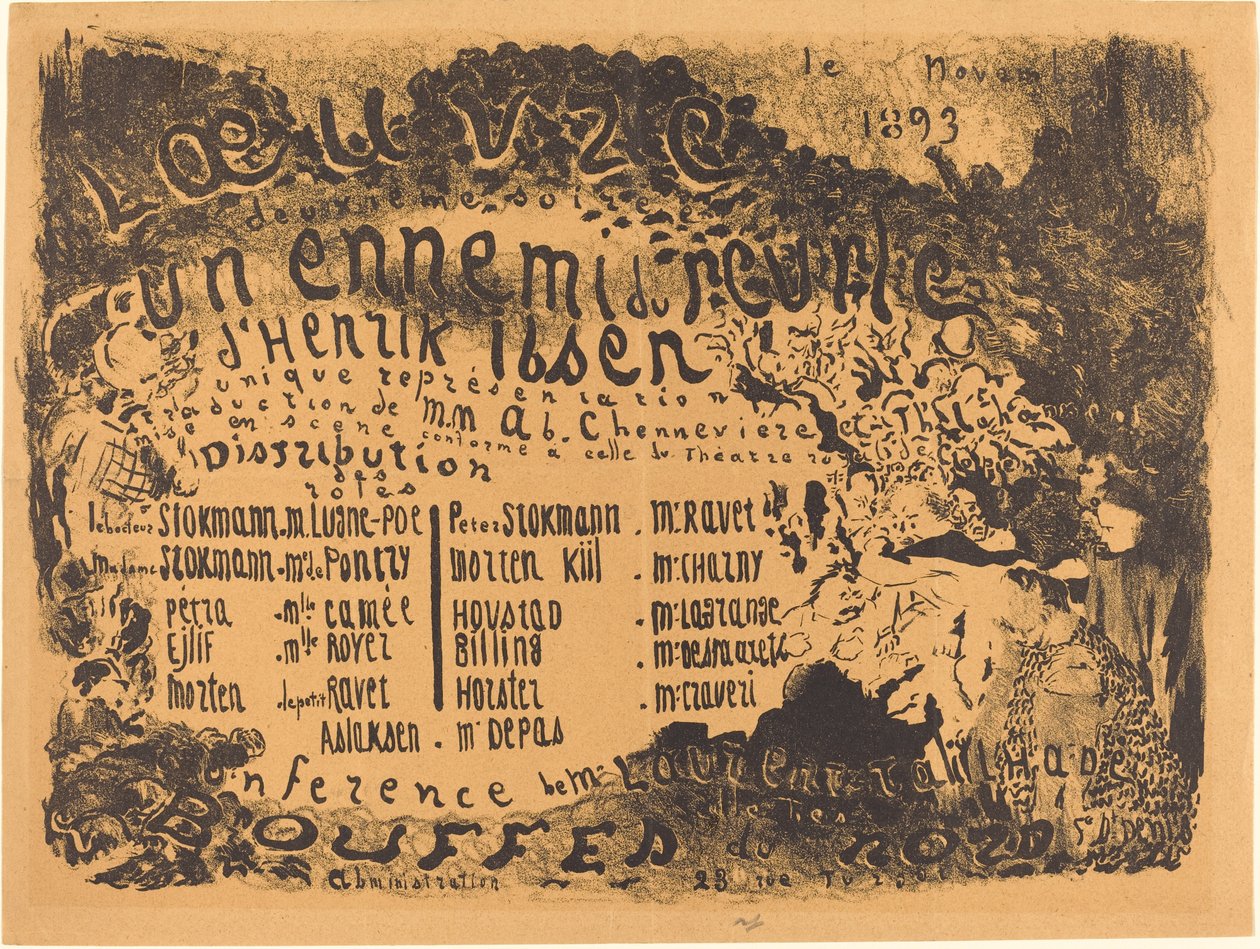 le Novemb
1893
L'Œuvre
deuxième soirée
un ennemi du peuple
d'Henrik Ibsen
unique représentation
traduction de M.M Ab. Chenneviere et
mise en scène conforme a celle du Théatre royal de
Distribution
des
rôles
le docteur Stokmann . M. Lugné-Poe
Madame Stokmann . Me de Pontry
Pétra . Mlle Camée
Ejlif . Mlle Royer
Morten . le petit Ravet
Peter Stokmann . Mr Ravet
Morten Kiil . Mr Charny
Hovstad . Mr Lagrange
Billing . Mr Desmarets
Horster . Mr Craveri
Aslaksen . Mr Depas
Conférence de Mr Laurent Tailhade
Bouffes du Nord Fg St Denis
administration 23 rue Turgot